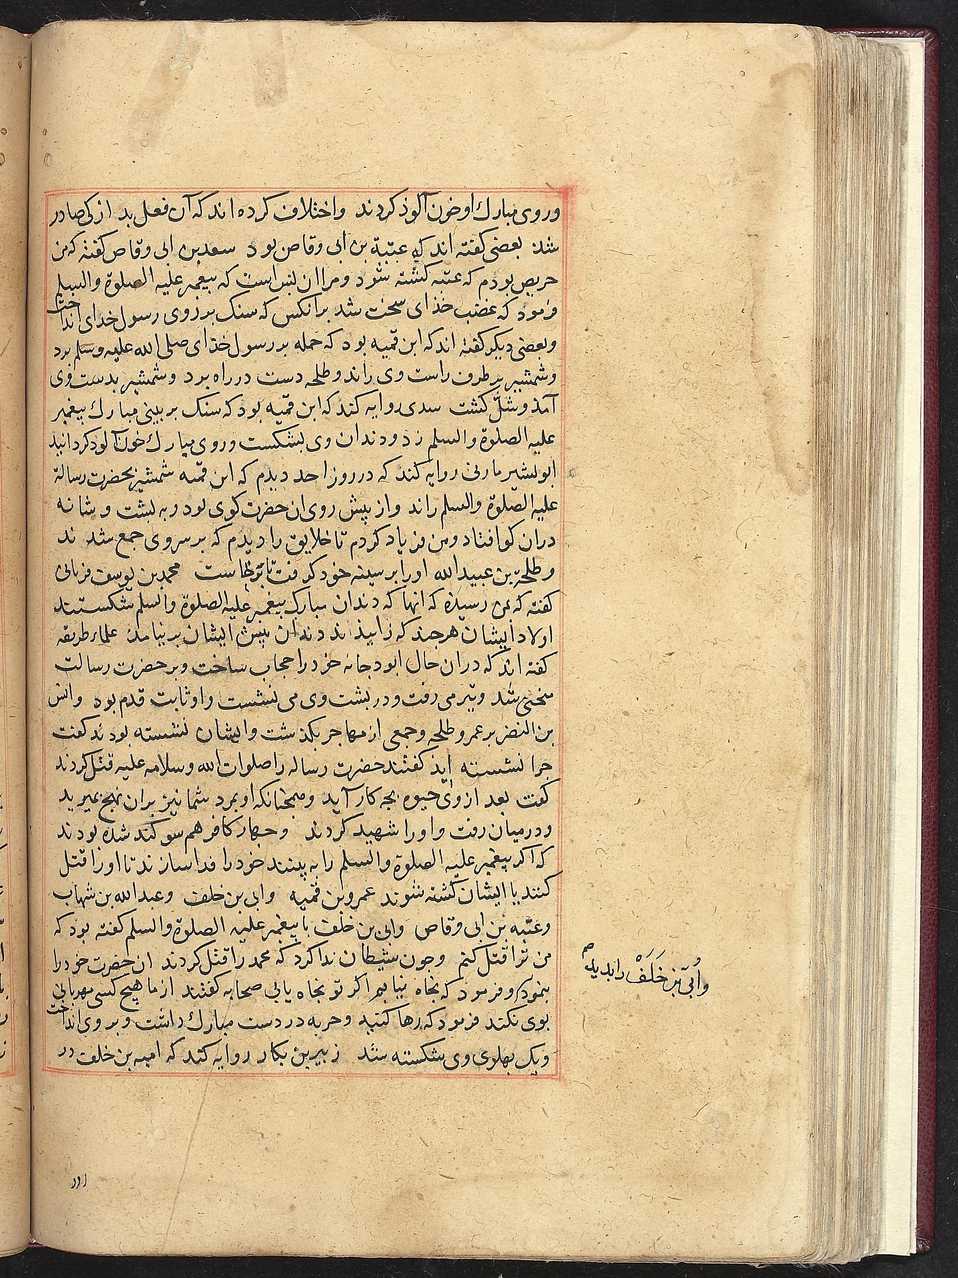 وروی مبارک او خون آلوذ کردند واختلاف کرده اند که آن فعل بد از کی صادر
شذ بعضی کفته اند که عتبة بن ابی وقاص بود سعد بن ابی وقاص کفته که من
حریص بودم که عتبه کشته شود ومرا ان بس است که بیغمبر علیه الصلوة والسلم
فرمود که غضب خذای سخت شد بر آنکس که سنک بر روی رسول خدای انداخت
وبعضی دیکر کفته اند که ابن قمیه بود که حمله بر رسول خذای صلی الله علیه وسلم برد
وشمشیر بر طرف راست وی راند وطلحه دست در راه برد وشمشیر بدست وی
آمذ وشل کشت سدی روایه کند که ابن قمیه بود که سنک بر بینی مبارک بیغمبر
علیه الصلوة والسلم زد ودندان وی بشکست وروی مبارک خون آلود کردانید
ابو بشیر مازنی روایه کند که در روز احد دیدم که ابن قمیه شمشیر بحضرت رسالة
علیه الصلوة والسلم راند واز بیش روی ان حضرت کوی بود وبه بشت وشانه
دران کو افتاد ومن فریاد کردم تا خلایق را دیدم که بر سر وی جمع شدند
وطلحة بن عبید الله اورا بر سینه خود کرفت تا برخاست محمد بن یوسف فریابی
کفته که بمن رسیده که انها که دندان مبارک بیغمبر علیه الصلوة والسلم شکستند
اولاد ایشان هر جند که زایند دندان بیش ایشان بر نیامد علماء طریقه
کفته اند که دران حال ابو دجانه خودرا حجاب ساخت وبر حضرت رسالت
منحنی شد وتیر می رفت ودر بشت وی می نشست واو ثابت قدم بود وانس
بن النضر بر عمر وطلحه وجمعی از مهاجر بکذشت وایشان نشسته بودند کفت
جرا نشسته اید کفتند حضرت رساله را صلوات الله وسلامه علیه قتل کردند
کفت بعد از وی حیوه بجه کار آید وهمجنانکه او بمرد شما نیز بران نهج بمیرید
ودر میان رفت واورا شهید کردند وجهار کافر هم سوکند شده بودند
که اکر بیغمبر علیه الصلوة والسلم را به بینند خودرا فدا سازند تا اورا قتل
کنند یا ایشان کشته شوند عمرو بن قمیه وابی بن خلف وعبد الله بن شهاب
وعتبه بن ابی وقاص وابی بن خلف با بیغمبر علیه الصلوة والسلم کفته بود که
من ترا قتل کنم وجون شیطان ندا کرد که محمد را قتل کردند ان حضرت خودرا
بنمود وفرمود که نجاه نیابم اکر تو نجاه یابی صحابه کفتند از ما هیج کسی مهربانی
بوی نکند فرمود که رها کنید وحربه در دست مبارک داشت وبر وی انداخت
ویک بهلوی وی شکسته شد زبیر بن بکار روایه کند که امیه بن خلف در
وأبی بن خلف را بدید